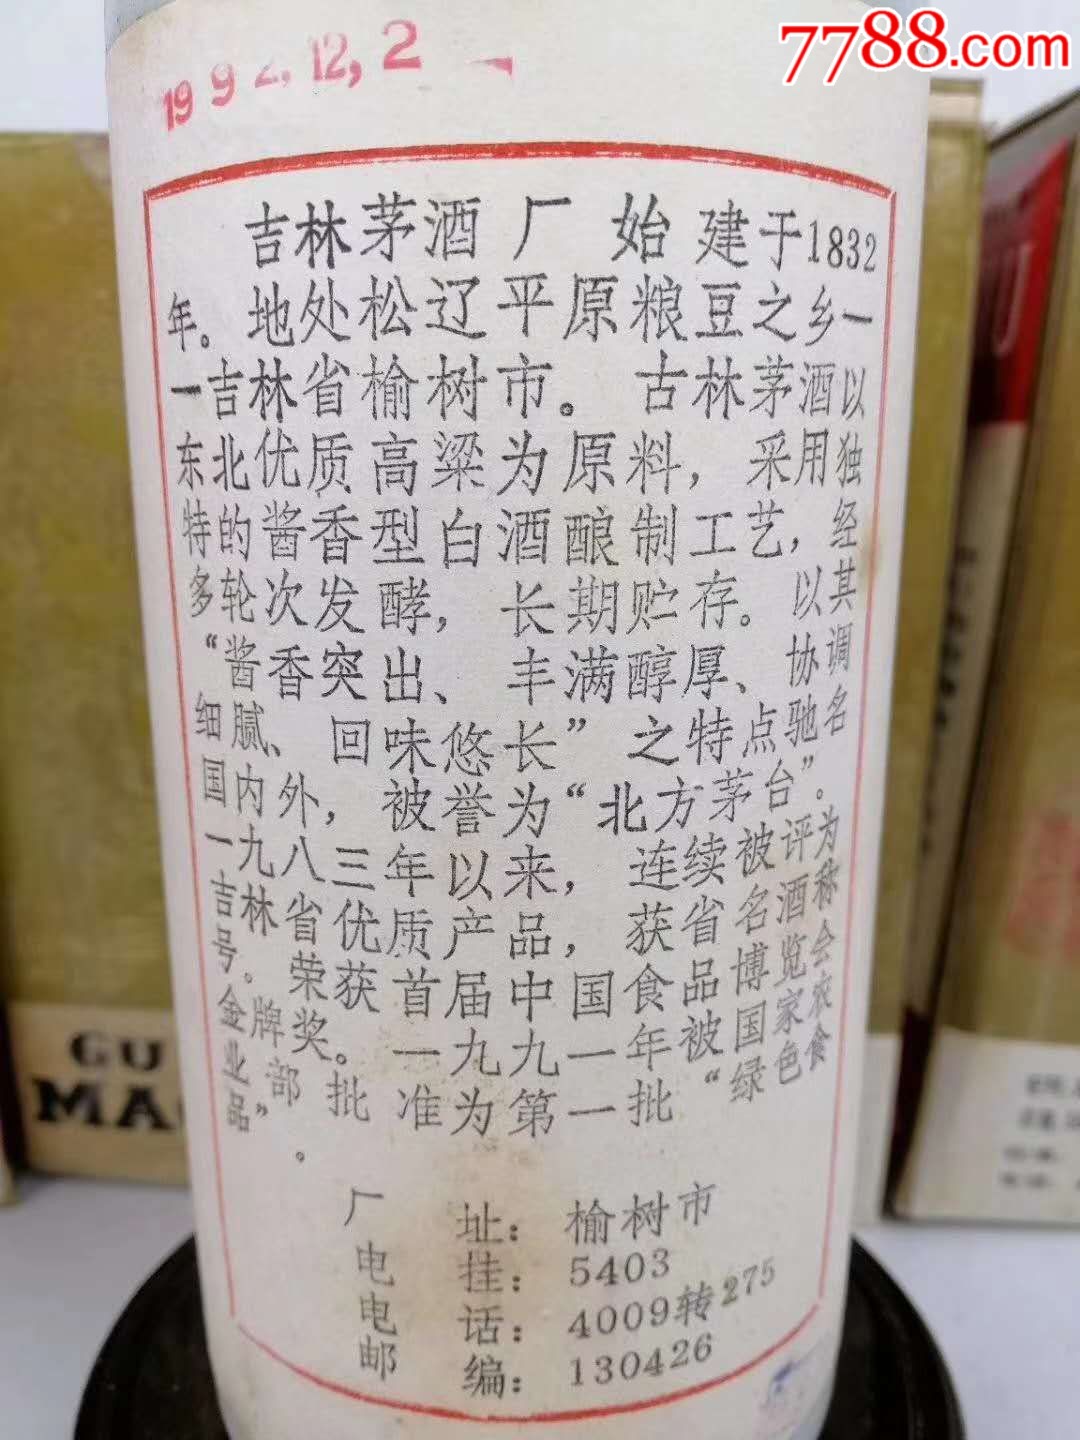 7788.com
1992.12,2
吉林茅酒厂始建于1832
年。地处松辽平原粮豆之乡一
一吉林省榆树市。古林茅酒以
东北优质高粱为原料，采用独
特的酱香型白酒酿制工艺，经
多轮次发酵，长期贮存。以其
“酱香突出、丰满醇厚、协调
细腻、回味悠长”之特点驰名
国内外，被誉为“北方茅台”。
一九八三年以来，连续被评为
吉林省优质产品，获省名酒称
号。荣获首届中国食品博览会
金牌奖。一九九一年被国家农
业部批准为第一批“绿色食
品”。
厂址：榆树市
电挂：5403
电话：4009转275
邮编：130426
GU
MA